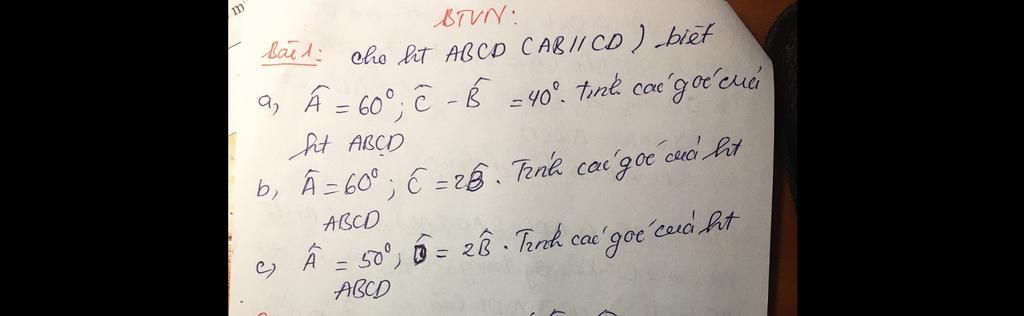 m
BTVN:
Bài 1: cho ht ABCD (AB//CD) biết
a, Â = 60°; Ĉ - B̂ = 40°. Tính các góc của
ht ABCD
b, Â = 60°; Ĉ = 2B̂. Tính các góc của ht
ABCD
c, Â = 50°; D̂ = 2B̂. Tính các góc của ht
ABCD